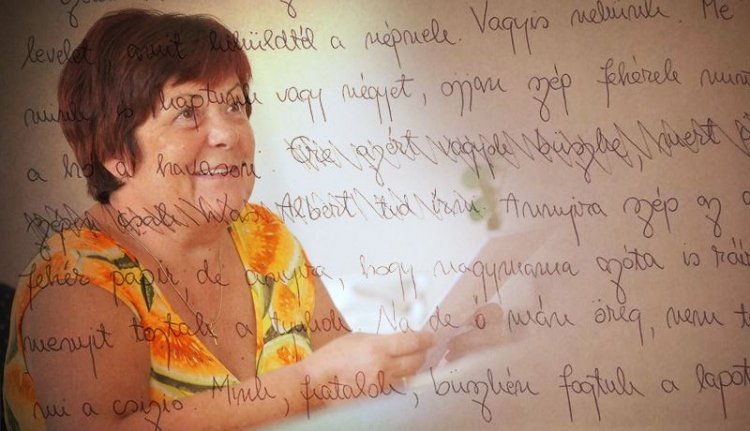 levelet, amit kiküldtél a népnek. Vagyis nekünk. Me
mink is kaptunk vagy négyet, ojjan szép fehérek mint
a hó a havason. azért vagyok büszke, mert
szépen csak Was Albert tud írni. Annyira szép az a
fehér papír, de annyira, hogy nagymama azóta is ráí
menyit tojtak a tyukok. Na de ő mán öreg, nem t
mi a csizio. Mink, fiatalok, büszkén fogtuk a lapot